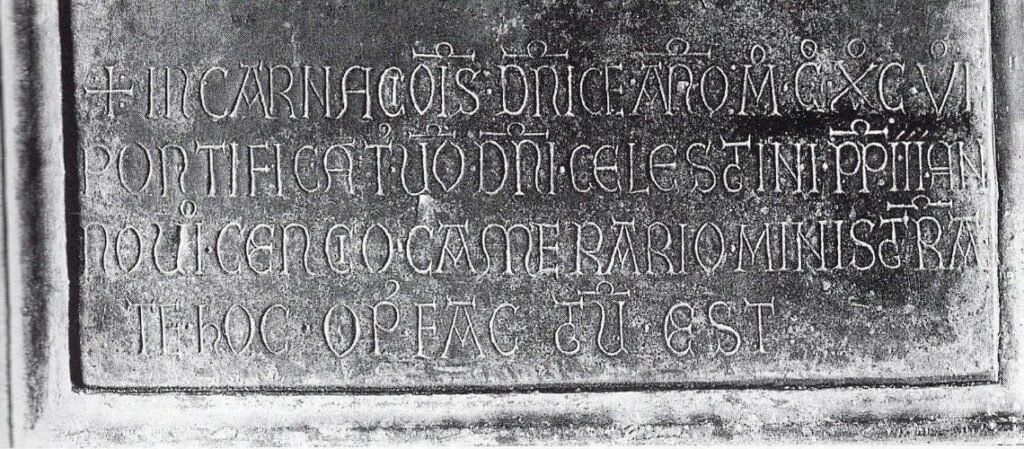 + INCARNACOIS · DNICE · ANO · M · C · XC · VI
PONTIFICAT UO · DNI · CELESTINI · PP · III · AN
NO UI · CENCIO · CAMERARIO · MINISTRA
TE · hOC · OP · FAC TU · EST